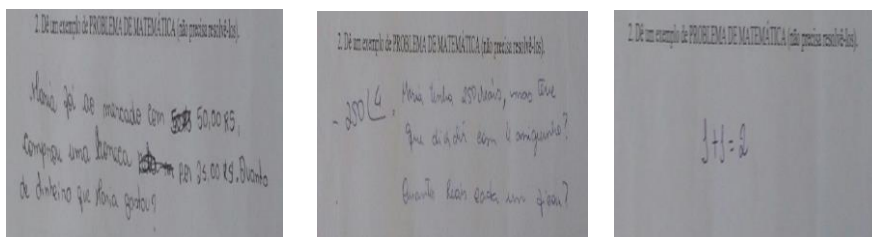 2. Dê um exemplo de PROBLEMA DE MATEMÁTICA (não precisa resolvê-los).
Maria foi ao mercado com 50,00 R$,
comprou uma boneca por 25,00 R$. Quanto
de dinheiro que Maria gastou?
2. Dê um exemplo de PROBLEMA DE MATEMÁTICA (não precisa resolvê-los).
- 250 4 . Maria tinha 250 reais, mas teve
que dividir com 4 amiguinho?
Quanto Reais cada um ficou?
2. Dê um exemplo de PROBLEMA DE MATEMÁTICA (não precisa resolvê-los).
1+1=2